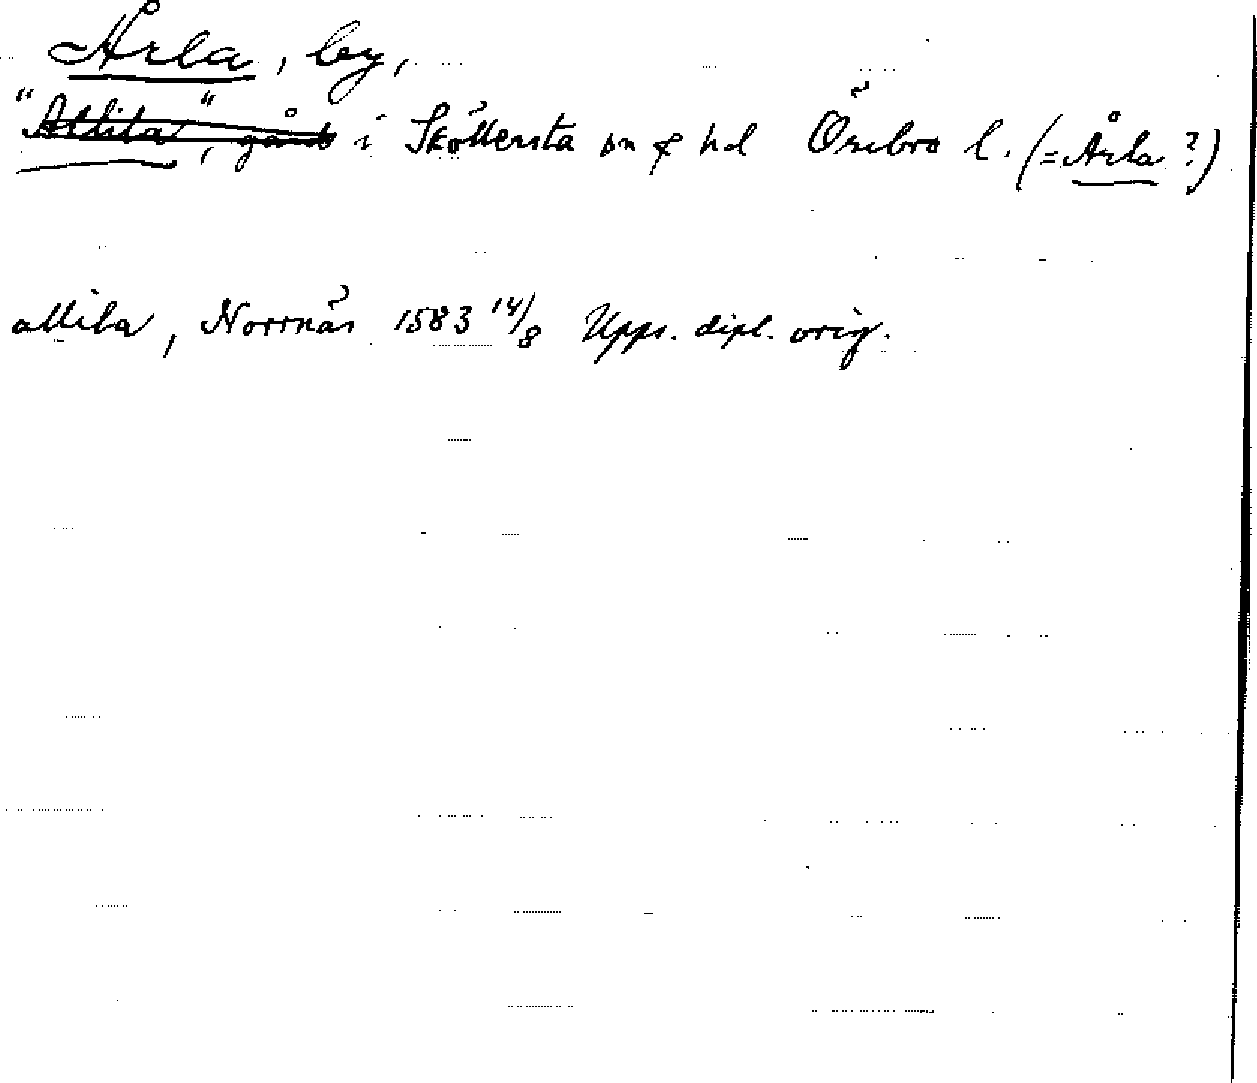 Årla, by,
"Attita", gård i Sköllersta sn & hd Örebro l. (= Årla ?)
attita, Norrnäs 1583 14/8 Upps. dipl. orig.